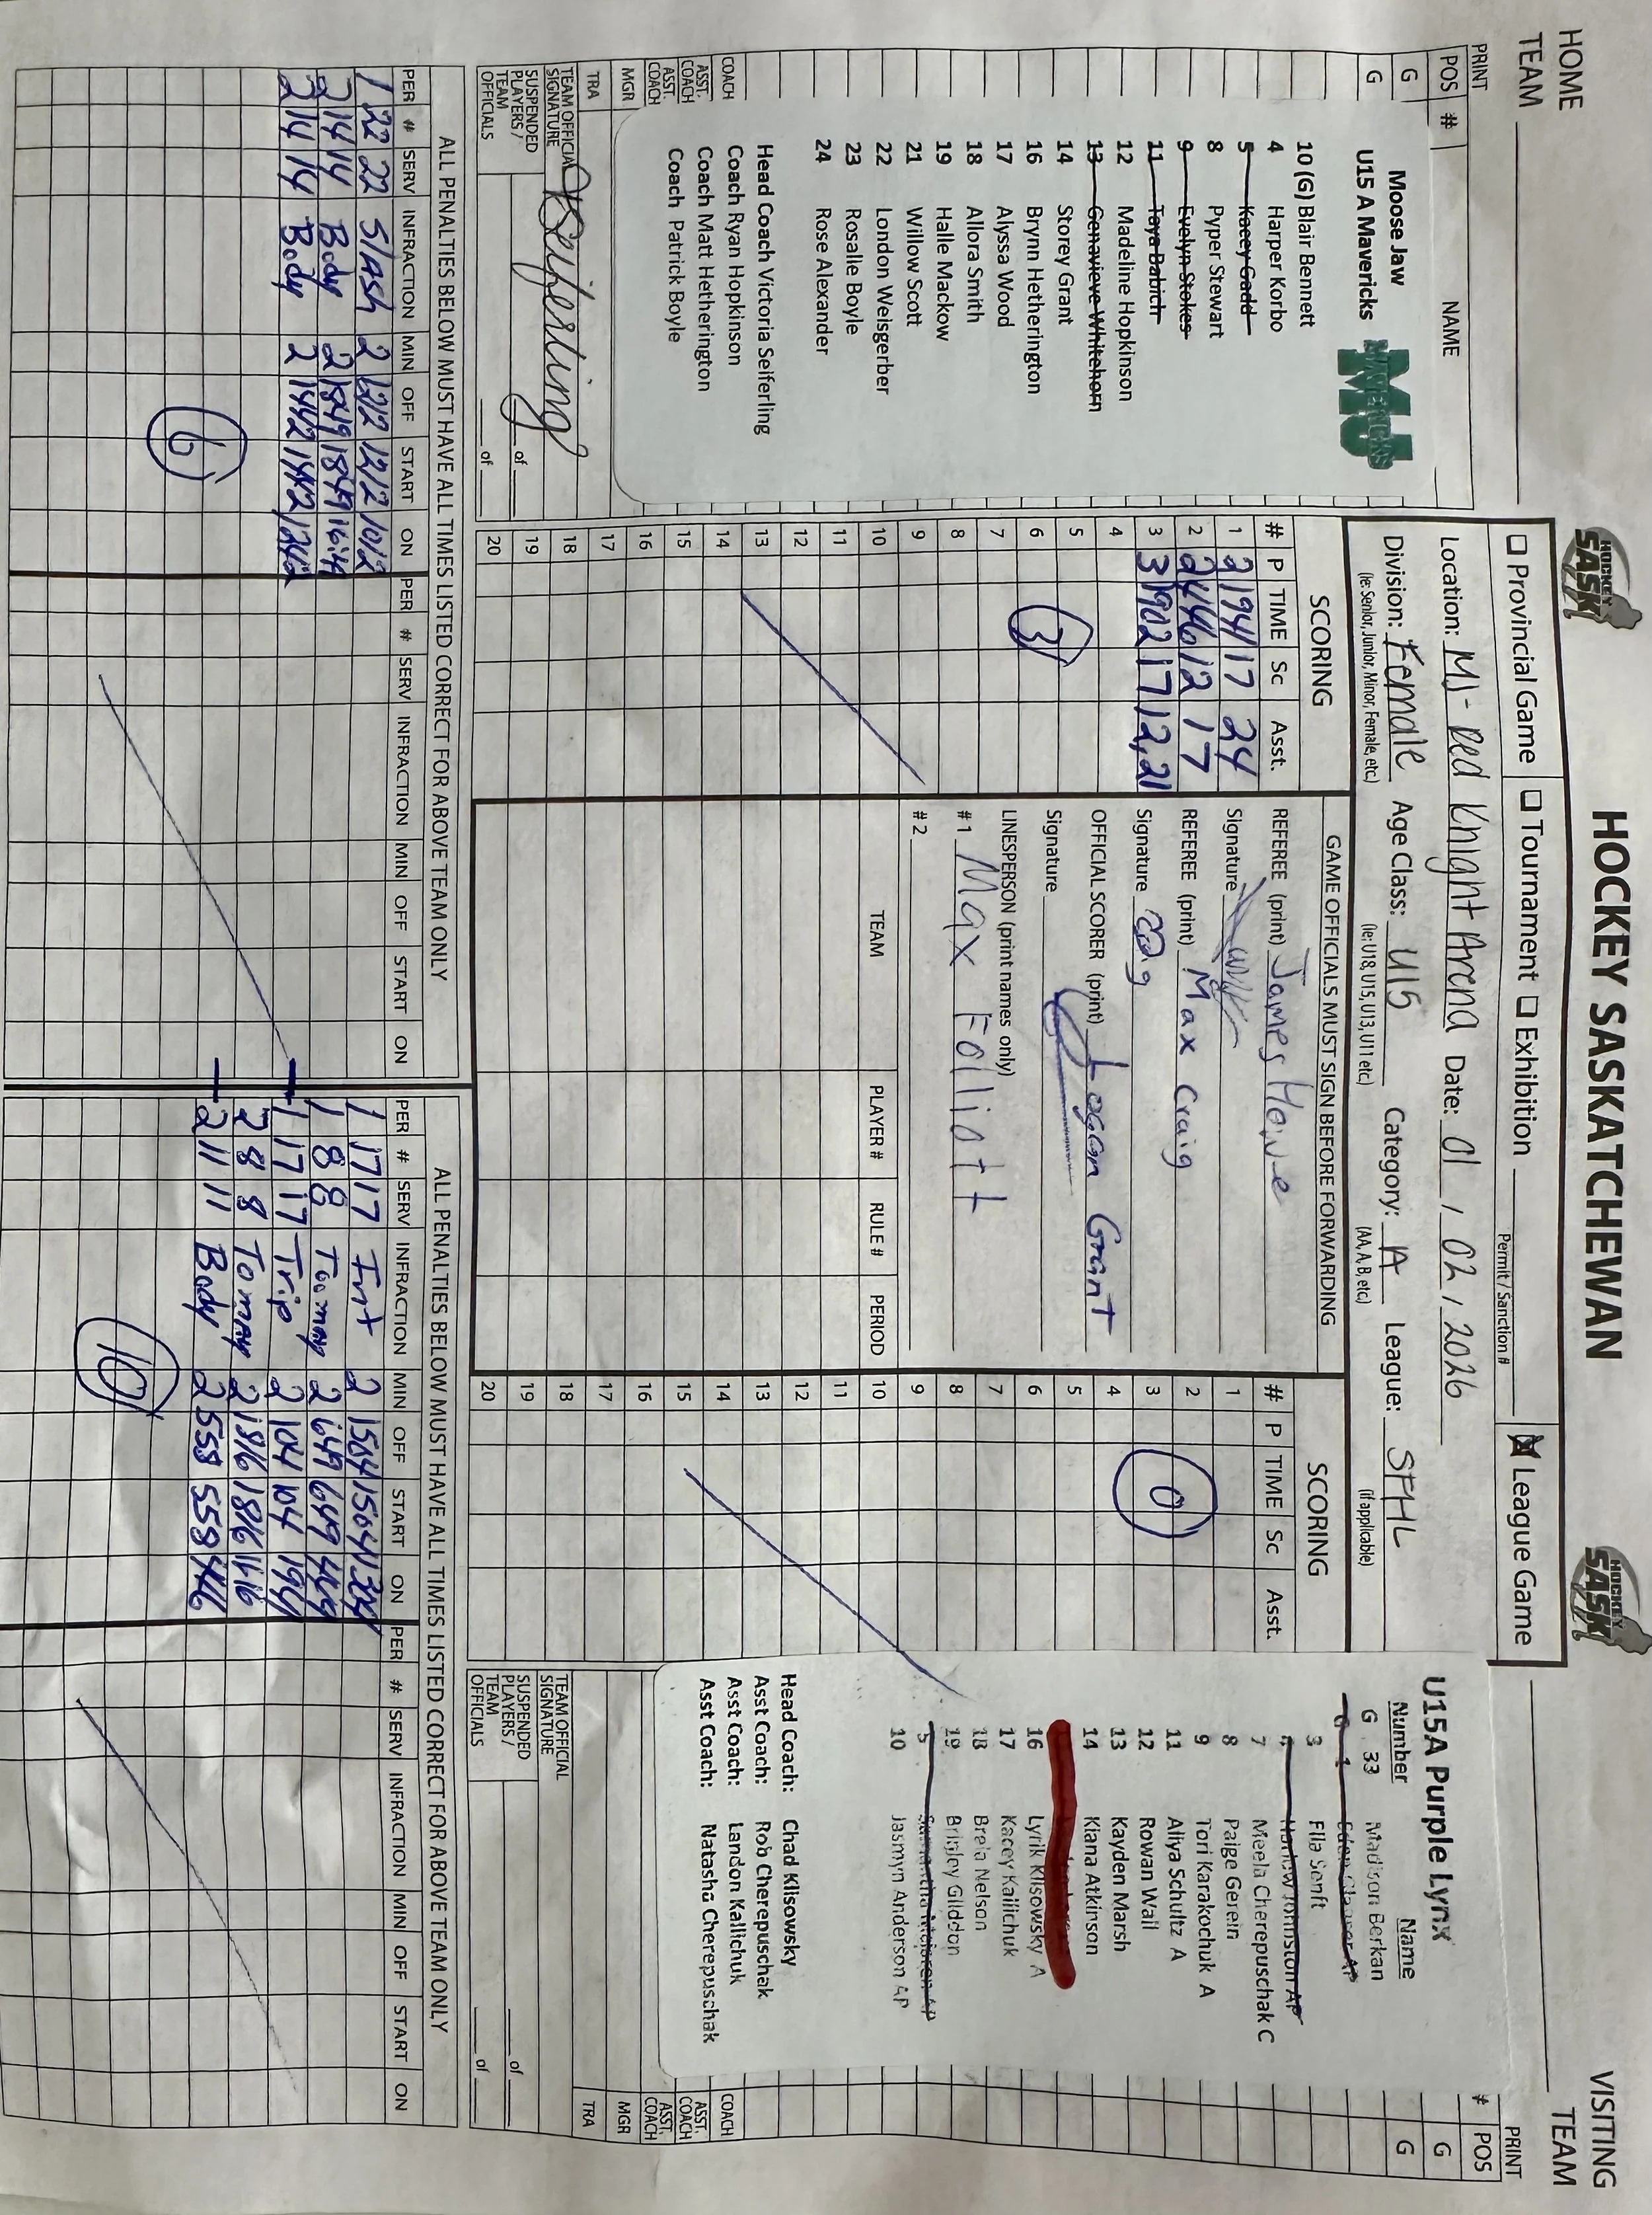 HOCKEY SASKATCHEWAN
HOCKEY SASK
HOCKEY SASK
HOME TEAM
VISITING TEAM
☐ Provincial Game ☐ Tournament ☐ Exhibition
Permit / Sanction #
☒ League Game
Location: MJ- Red Knight Arena Date: 01 / 02 / 2026
Division: Female Age Class: U15 Category: A League: SFHL
(ie: Senior, Junior, Minor, Female, etc) (ie: U18, U15, U13, U11 etc.) (AA, A, B, etc.) (if applicable)
PRINT
POS # NAME
G
G
Moose Jaw
U15 A Mavericks
MAVERICKS
MJ
10 (G) Blair Bennett
4 Harper Korbo
5 Kacey Gadd
8 Pyper Stewart
9 Evelyn Stokes
11 Taya Babich
12 Madeline Hopkinson
13 Genavieve Whitehorn
14 Storey Grant
16 Brynn Hetherington
17 Alyssa Wood
18 Allora Smith
19 Halle Mackow
21 Willow Scott
22 London Weisgerber
23 Rosalie Boyle
24 Rose Alexander
Head Coach Victoria Seiferling
Coach Ryan Hopkinson
Coach Matt Hetherington
Coach Patrick Boyle
COACH
ASST. COACH
ASST. COACH
MGR
TRA
TEAM OFFICIAL SIGNATURE VSeiferling
SUSPENDED PLAYERS / TEAM OFFICIALS
of
of
SCORING
# P TIME Sc Asst.
1 2 1941 17 24
2 2 446 12 17
3 3 1902 17 12,21
4
5
6
7
8
9
10
11
12
13
14
15
16
17
18
19
20
3
GAME OFFICIALS MUST SIGN BEFORE FORWARDING
REFEREE (print) James Howe
Signature
REFEREE (print) Max Craig
Signature
OFFICIAL SCORER (print) Logan Grant
Signature
LINESPERSON (print names only)
#1 Max Folliott
#2
TEAM PLAYER # RULE # PERIOD
SCORING
# P TIME Sc Asst.
1
2
3
4
5
6
7
8
9
10
11
12
13
14
15
16
17
18
19
20
0
PRINT
# POS
G
G
U15A Purple Lynx
Number Name
G 33 Madison Berkan
1
3 Ella Senft
Harlow Johnston AP
7 Meela Cherepuschak C
8 Paige Gerein
9 Tori Karakochuk A
11 Aliya Schultz A
12 Rowan Wail
13 Kayden Marsh
14 Kiana Atkinson
16 Lyrik Klisowsky A
17 Kacey Kalichuk
18 Brela Nelson
19 Brinley Gliddon
5 Samantha
10 Jasmyn Anderson AP
Head Coach: Chad Klisowsky
Asst Coach: Rob Cherepuschak
Asst Coach: Landon Kalichuk
Asst Coach: Natasha Cherepuschak
COACH
ASST. COACH
ASST. COACH
MGR
TRA
TEAM OFFICIAL SIGNATURE
SUSPENDED PLAYERS / TEAM OFFICIALS
of
of
ALL PENALTIES BELOW MUST HAVE ALL TIMES LISTED CORRECT FOR ABOVE TEAM ONLY
PER # SERV INFRACTION MIN OFF START ON PER # SERV INFRACTION MIN OFF START ON
1 22 22 Slash 2 1212 1212 1012
2 14 14 Body 2 1849 1849 1649
2 14 14 Body 2 1442 1442 1242
6
ALL PENALTIES BELOW MUST HAVE ALL TIMES LISTED CORRECT FOR ABOVE TEAM ONLY
PER # SERV INFRACTION MIN OFF START ON PER # SERV INFRACTION MIN OFF START ON
1 17 17 Int 2 1504 1504
1 8 8 Toomany 2 649 649 449
1 17 17 Trip 2 104 104
2 8 8 Tomany 2 1816 1816 1616
2 11 11 Body 2 558 558
10